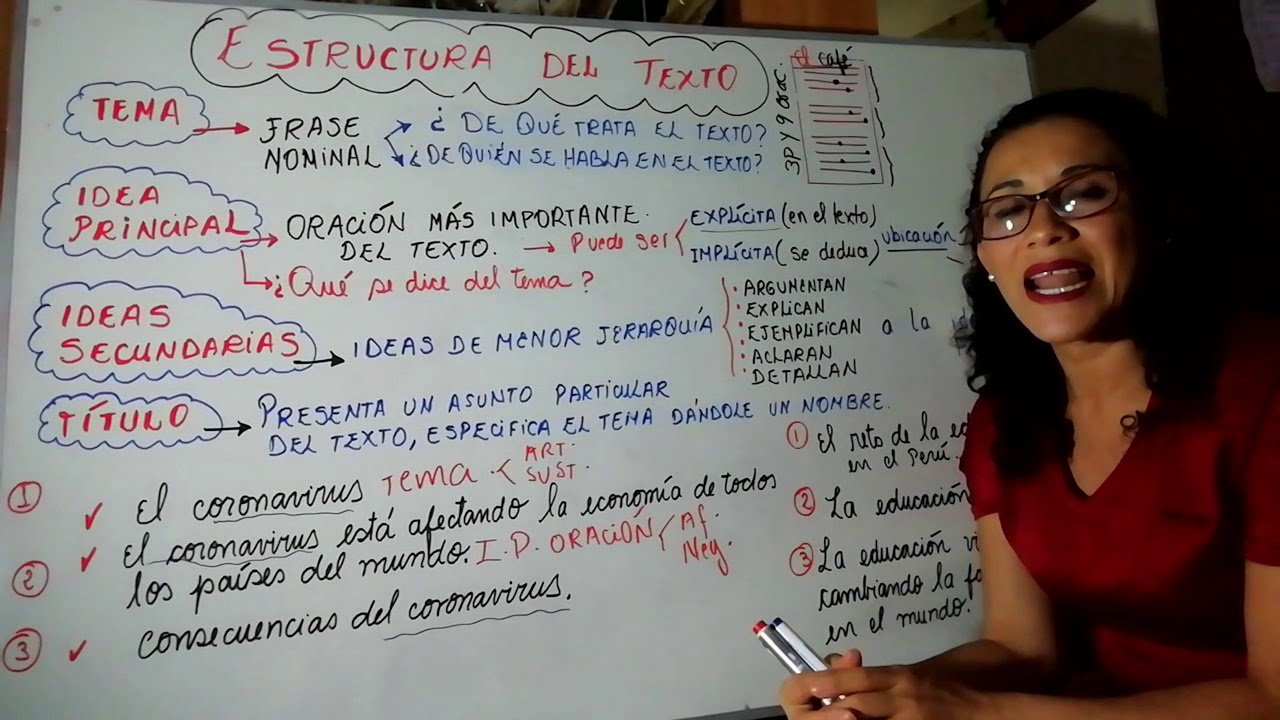 ESTRUCTURA DEL TEXTO
El café
3P Y 9 orac.
TEMA
FRASE
NOMINAL
¿DE QUÉ TRATA EL TEXTO?
¿DE QUIÉN SE HABLA EN EL TEXTO?
IDEA
PRINCIPAL
ORACIÓN MÁS IMPORTANTE.
DEL TEXTO. → Puede ser
EXPLÍCITA (en el texto)
IMPLÍCITA (se deduce)
ubicación
¿Qué se dice del tema?
IDEAS
SECUNDARIAS
IDEAS DE MENOR JERARQUÍA
• ARGUMENTAN
• EXPLICAN
• EJEMPLIFICAN a la
• ACLARAN
• DETALLAN
TÍTULO
PRESENTA UN ASUNTO PARTICULAR
DEL TEXTO, ESPECIFICA EL TEMA DÁNDOLE UN NOMBRE.
① ✓ El coronavirus Tema
ART.
SUST.
② ✓ El coronavirus está afectando la economía de todos
los países del mundo. I.P. ORACIÓN
Af.
Neg.
③ ✓ Consecuencias del coronavirus.
① El reto de la
en el Perú.
② La educación
③ La educación
cambiando la
en el mundo.